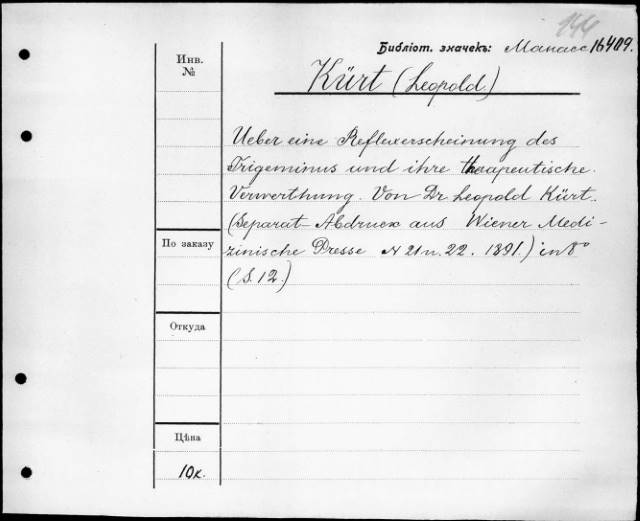 144
Библіот. значекъ: Манасс 16409.
Инв.
№
Kürt (Leopold.)
Ueber eine Reflexerscheinung des
Trigeminus und ihre therapeutische.
Verwerthung. Von Dr Leopold Kürt.
(Separat-Abdruck aus Wiener Medi-
zinische Presse N 21 u. 22. 1891.) in 8°
(S. 12.)
По заказу
Откуда
Цѣна
10к.